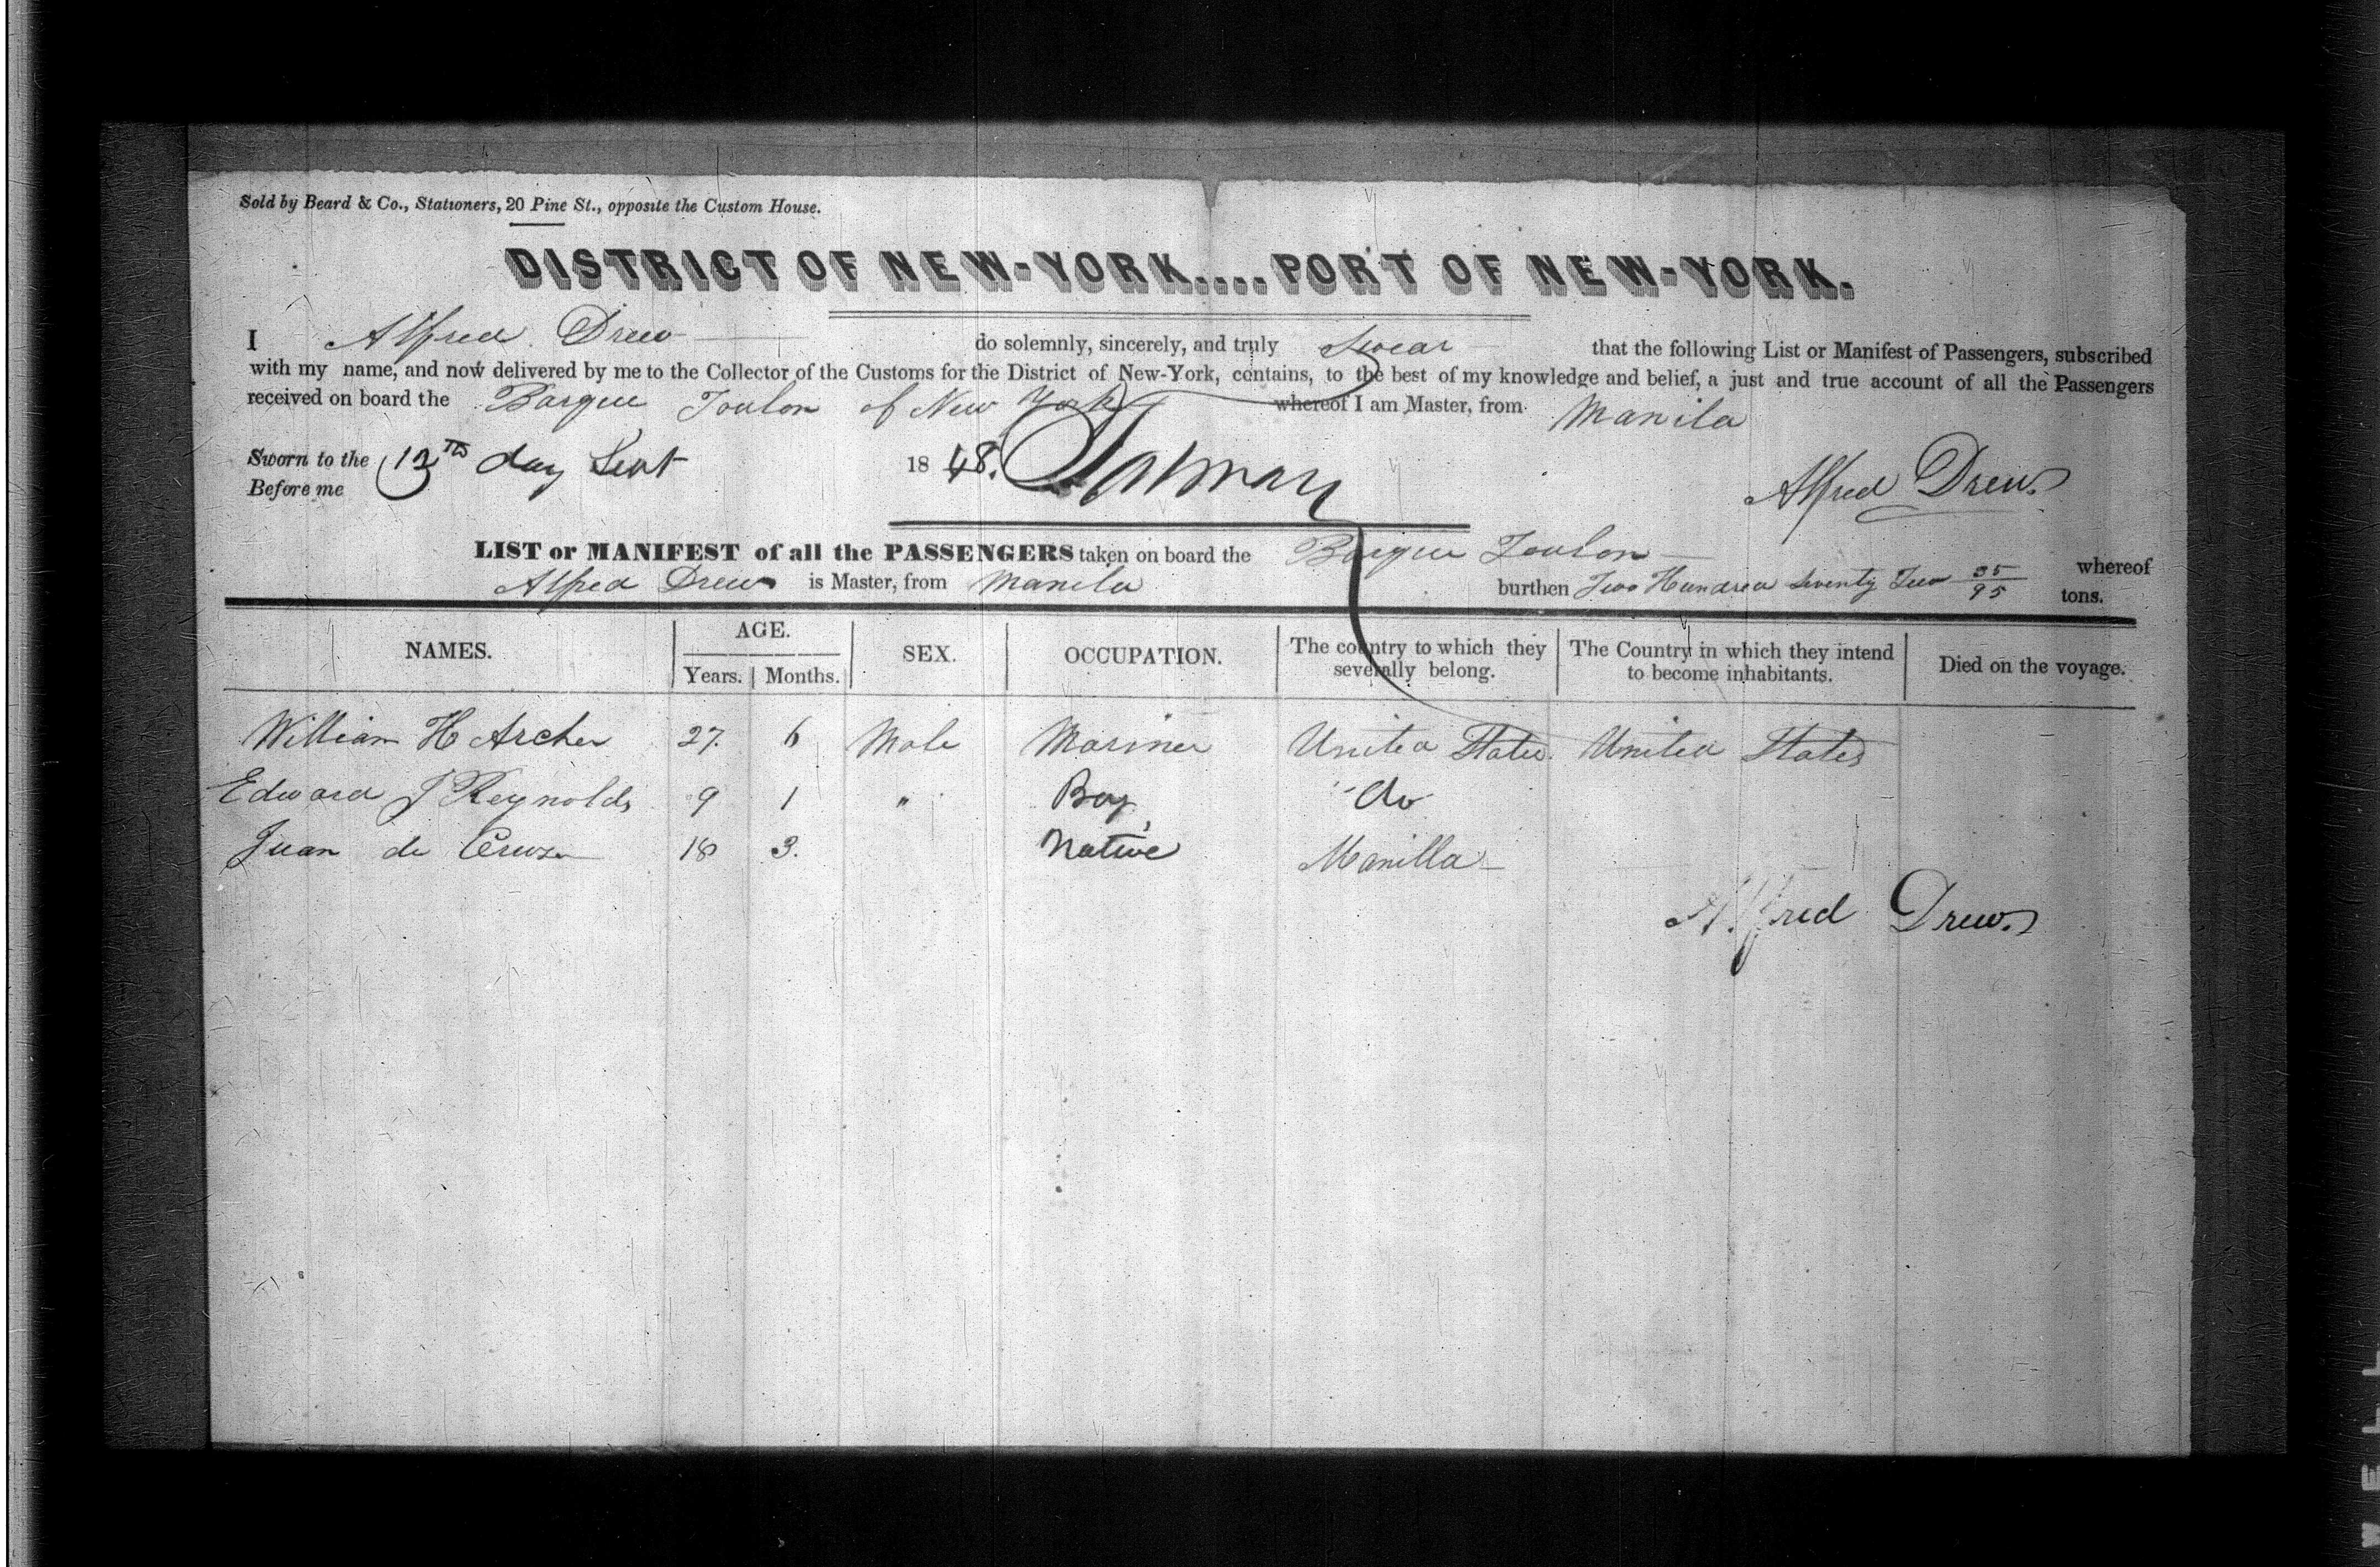 Sold by Beard & Co., Stationers, 20 Pine St., opposite the Custom House.
DISTRICT OF NEW-YORK....PORT OF NEW-YORK.
I Alfred Drew do solemnly, sincerely, and truly Swear that the following List or Manifest of Passengers, subscribed
with my name, and now delivered by me to the Collector of the Customs for the District of New-York, contains, to the best of my knowledge and belief, a just and true account of all the Passengers
received on board the Barque Toulon of New York whereof I am Master, from Manila
Sworn to the 13th day Sept 1848.
Before me
Alfred Drew
LIST or MANIFEST of all the PASSENGERS taken on board the Barque Toulon whereof
Alfred Drew is Master, from Manila burthen Two Hundred Seventy Two 35/95 tons.
NAMES. AGE. SEX. OCCUPATION. The country to which they severally belong. The Country in which they intend to become inhabitants. Died on the voyage.
Years. Months.
William H Archer 27. 6 Male Mariner United States. United States
Edward J Reynolds 9 1 " Boy do
Juan de Cruz 18 3. Native Manilla
Alfred Drew